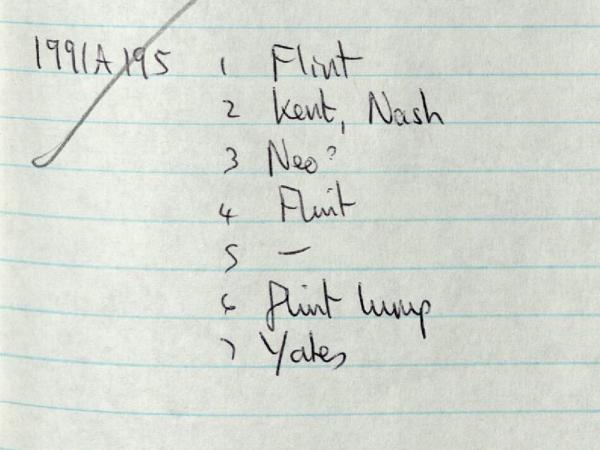 1991A195 1 Flint
2 Kent, Nash
3 Neo?
4 Flint
5 —
6 Flint lump
7 Yates